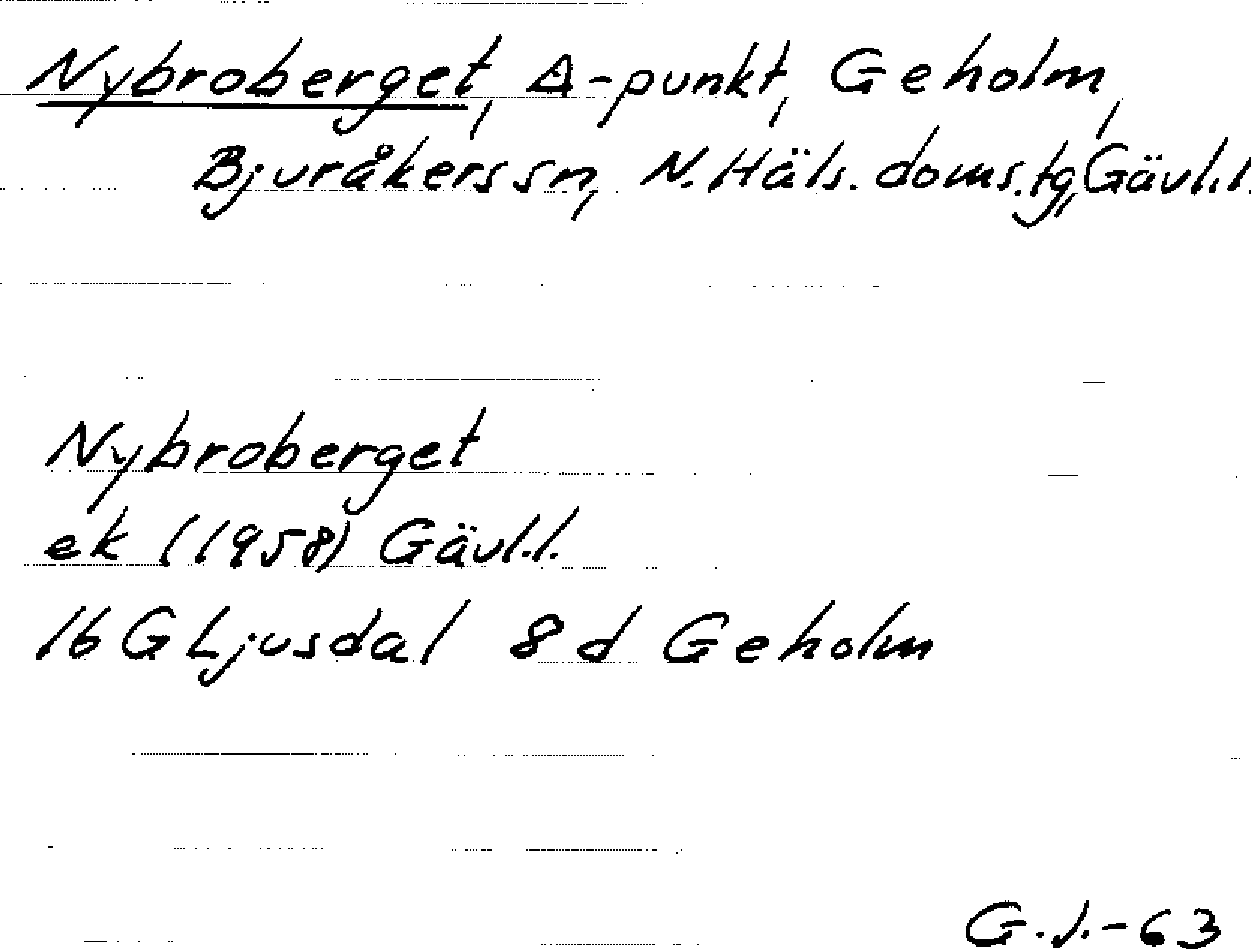 Nybroberget, Δ-punkt, Geholm,
Bjuråkers sn, N. Häls. doms.tg, Gävl.l.
Nybroberget
ek (1958) Gävl.l.
16 G Ljusdal 8 d Geholm
G.J.-63